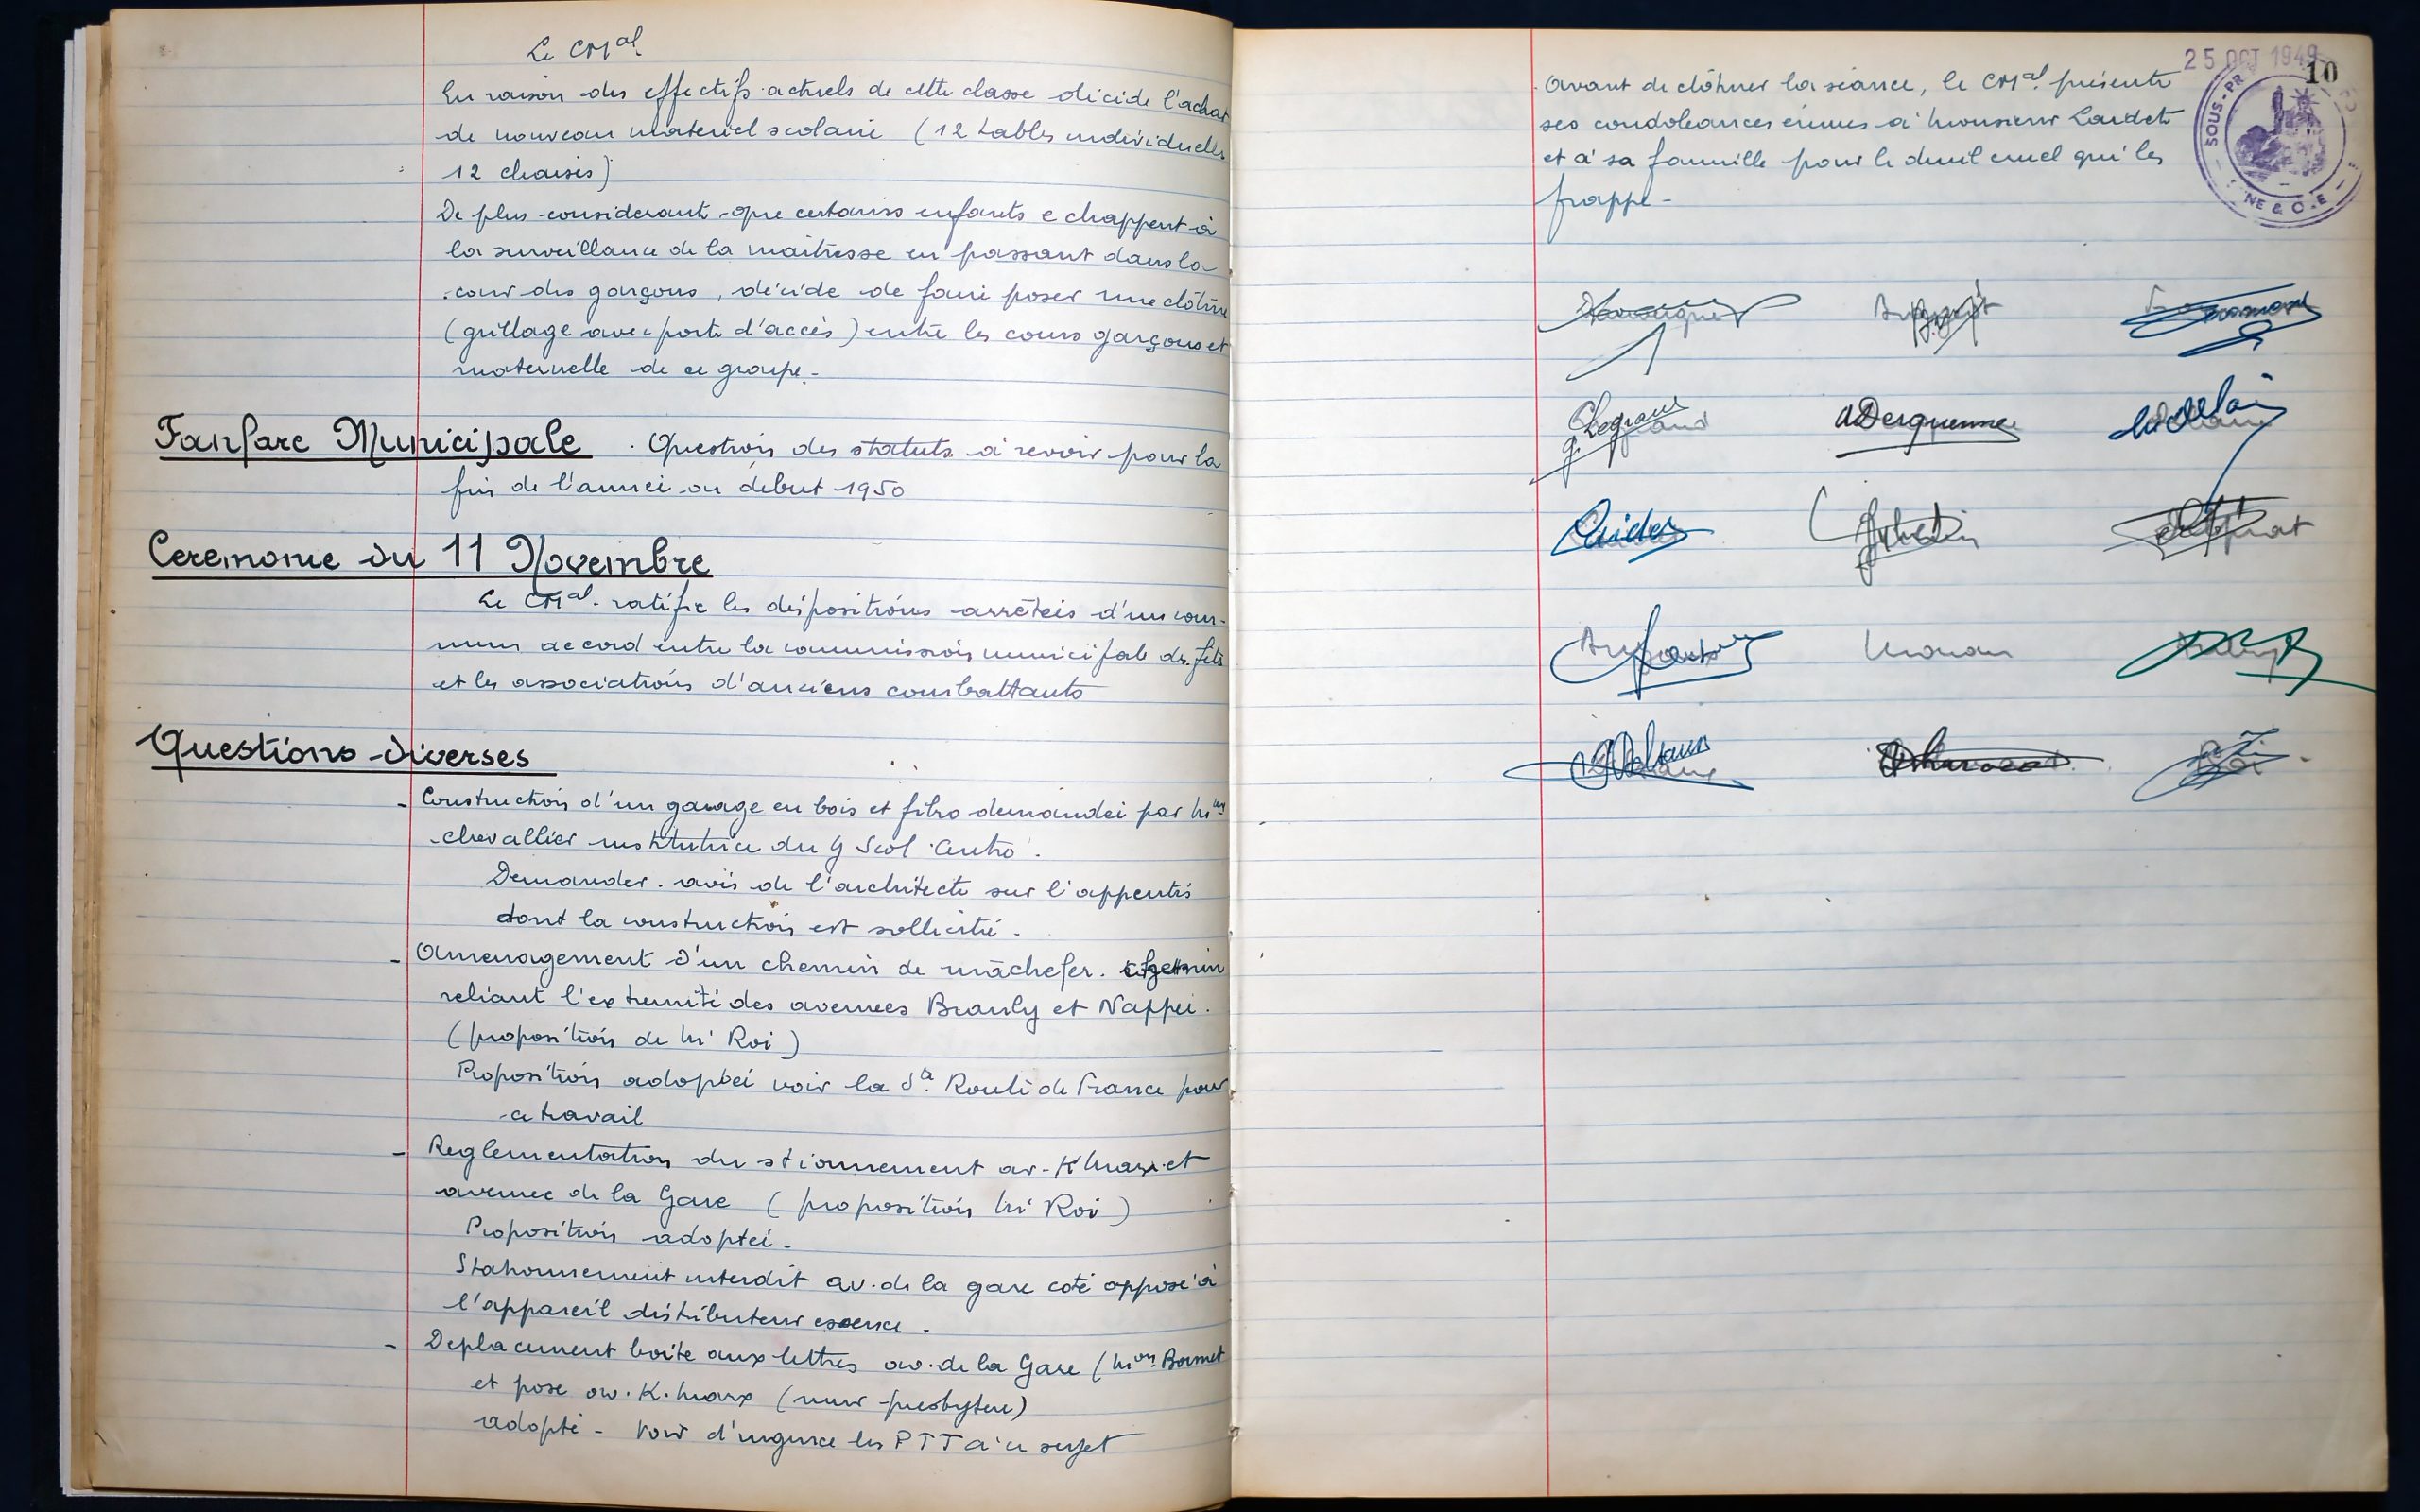 Le CMal
En raison des effectifs actuels de cette classe décide l'achat
de nouveau materiel scolaire (12 tables individuelles
12 chaises)
De plus considerant que certains enfants echappent à
la surveillance de la maîtresse en passant dans la
cour des garçons, décide de faire poser une clôture
(grillage avec porte d'accès) entre les cours garçons et
maternelle de ce groupe.-
Fanfare Municipale . Question des statuts à revoir pour la
fin de l'année ou début 1950
Ceremonie du 11 Novembre
Le CMal. ratifie les dispositions arrêtées d'un com-
mun accord entre la commission municipale des fêtes
et les associations d'anciens combattants
Questions diverses
- Construction d'un garage en bois et fibro demandée par
chevallier institutrice du G Scol Centre.
Demander avis de l'architecte sur l'appentis
dont la construction est sollicité.
- Amenagement d'un chemin de mâchefer.
reliant l'extremité des avenues Branly et Nappée.
(proposition de Mr Roi)
Proposition adoptée voir la Sté Route de France pour
ce travail
- Reglementation du stionnement av. K Marx et
avenue de la Gare (proposition Mr Roi)
Proposition adoptée.
Stationnement interdit av. de la gare coté opposé à
l'appareil distributeur essence.
- Deplacement boite aux lettres av. de la Gare (Mon Bonnet
et pose av. K. Marx (mur presbytere)
adopté - Voir d'urgence les PTT à ce sujet
25 OCT 1949
10
Avant de clôturer la séance, le CMal. présente
ses condoléances émues à Monsieur Laudet
et à sa famille pour le deuil cruel qui les
frappe -
SOUS-PR
NE & O.E
Legrand
ADerquenne